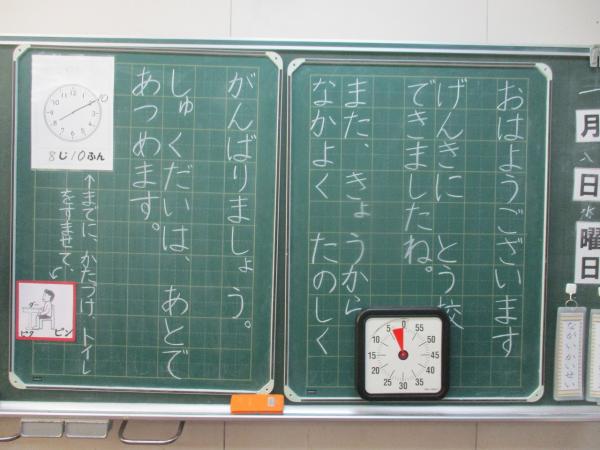 おはようございます
げんきに とう校
できましたね。
また、きょうから
なかよく たのしく
がんばりましょう。
しゅくだいは、あとで
あつめます。
8じ10ぷん
↑までに、かたづけ トイレ
をすませて、
ピン
一月
八日
水曜日
0 55 50 45 40 35 30 25 20 15 10 5
ながいかいせい